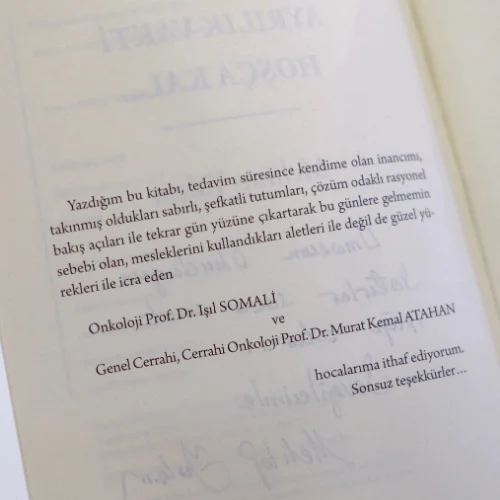 Yazdığım bu kitabı, tedavim süresince kendime olan inancımı,
takınmış oldukları sabırlı, şefkatli tutumları, çözüm odaklı rasyonel
bakış açıları ile tekrar gün yüzüne çıkartarak bu günlere gelmemin
sebebi olan, mesleklerini kullandıkları aletleri ile değil de güzel yü-
rekleri ile icra eden
Onkoloji Prof. Dr. Işıl SOMALİ
ve
Genel Cerrahi, Cerrahi Onkoloji Prof. Dr. Murat Kemal ATAHAN
hocalarıma ithaf ediyorum.
Sonsuz teşekkürler...